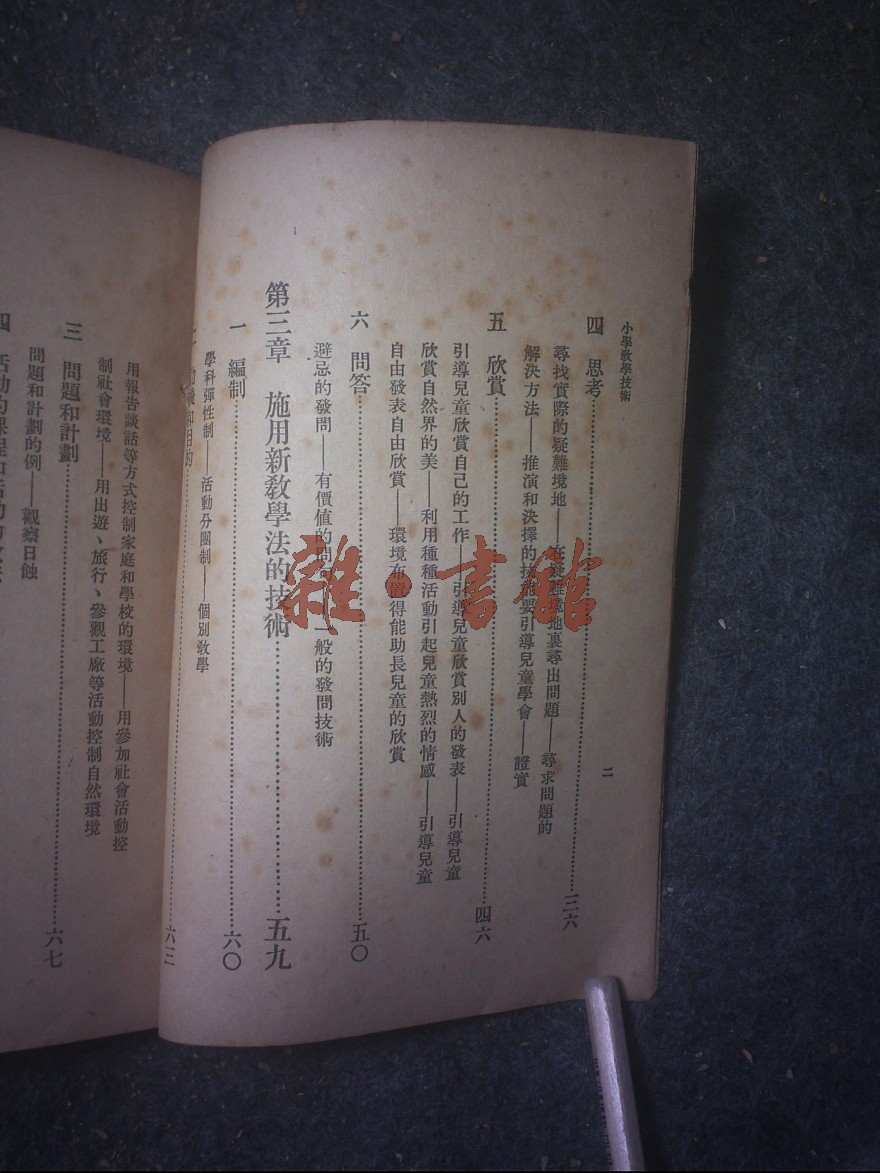 小學敎學技術
二
四 思考……三六
尋找實際的疑難境地——在疑難境地裏尋出問題——尋求問題的
解決方法——推演和決擇的技 要引導兒童學會——證實
五 欣賞……四六
引導兒童欣賞自己的工作——引導兒童欣賞別人的發表——引導兒童
欣賞自然界的美——利用種種活動引起兒童熱烈的情感——引導兒童
自由發表自由欣賞——環境布置得能助長兒童的欣賞
六 問答……五〇
避忌的發問——有價値的問 一般的發問技術
第三章 施用新敎學法的技術……五九
一 編制……六〇
學科彈性制——活動分團制——個別敎學
和目的……六三
用報告談話等方式控制家庭和學校的環境——用參加社會活動控
制社會環境——用出遊、旅行、參觀工廠等活動控制自然環境
三 問題和計劃……六七
問題和計劃的例——觀察日蝕
四 活動的課程和活動的
雜·書館